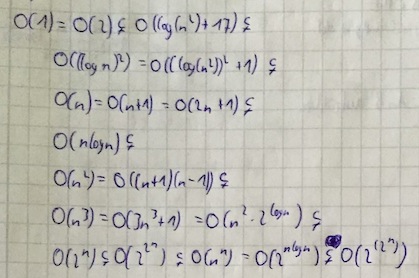 O(1) = O(2) ⊊ O(log(n²)+17) ⊊
O((log n)²) = O((log(n²))² + 1) ⊊
O(n) = O(n+1) = O(2n+1) ⊊
O(n log n) ⊊
O(n²) = O((n+1)(n-1)) ⊊
O(n³) = O(3n³+1) = O(n² · 2^(log n)) ⊊
O(2ⁿ) ⊊ O(2^(2n)) ⊊ O(nⁿ) = O(2^(n log n)) ⊊ O(2^(2ⁿ))